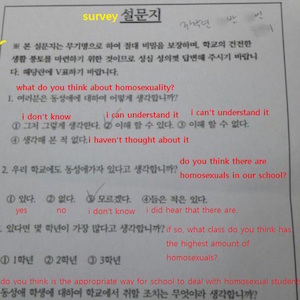 survey 설문지
3학년 반 번
※ 본 설문지는 무기명으로 하여 절대 비밀을 보장하며, 학교의 건전한
생활 풍토를 마련하기 위한 것이므로 성심 성의껏 답변해 주시기 바랍니
다. 해당란에 V표하기 바랍니다.
what do you think about homosexuality?
1. 여러분은 동성애에 대하여 어떻게 생각합니까?
i don't know i can understand it i can't understand it
① 그저 그렇게 생각한다. ② 이해 할 수 있다. ③ 이해 할 수 없다.
④ 생각해 본 적 없다. i haven't thought about it
do you think there are
homosexuals in our school?
2. 우리 학교에도 동성애자가 있다고 생각합니까?
① 있다. ② 없다. ③ 모르겠다. ④들은 적은 있다.
yes no i don't know i did hear that there are
있다면 몇 학년이 가장 많다고 생각합니까? if so, what class do you think has
the highest amount of
homosexuals?
① 1학년 ② 2학년 ③ 3학년
do you think is the appropriate way for school to deal with homosexual student
동성애 학생에 대하여 학교에서 취할 조치는 무엇이라 생각합니까?